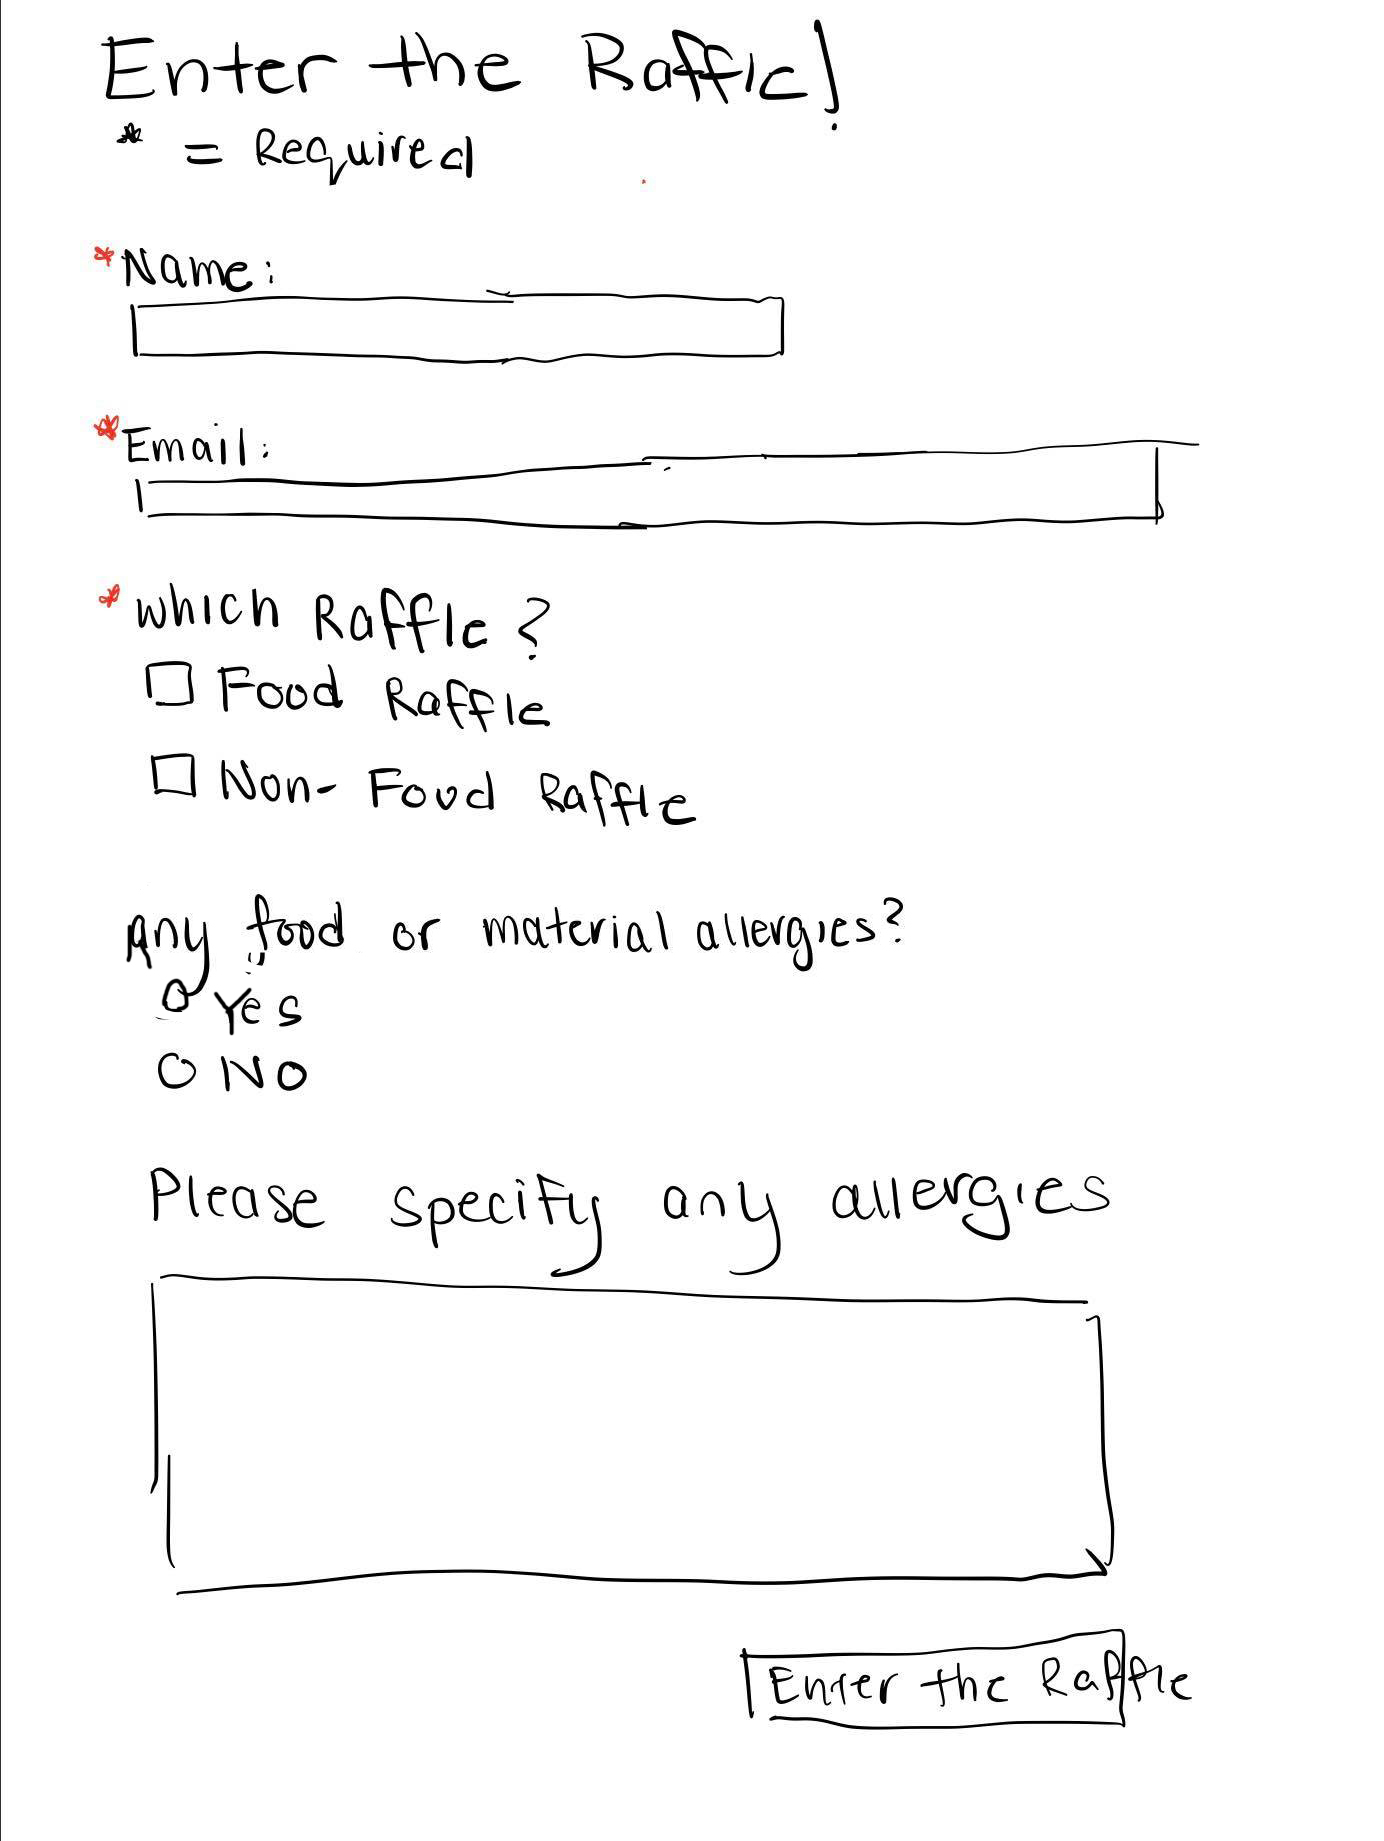 Enter the Raffle!
* = Required
*Name:
*Email:
*which Raffle?
Food Raffle
Non-Food Raffle
Any food or material allergies?
Yes
No
Please specify any allergies
Enter the Raffle